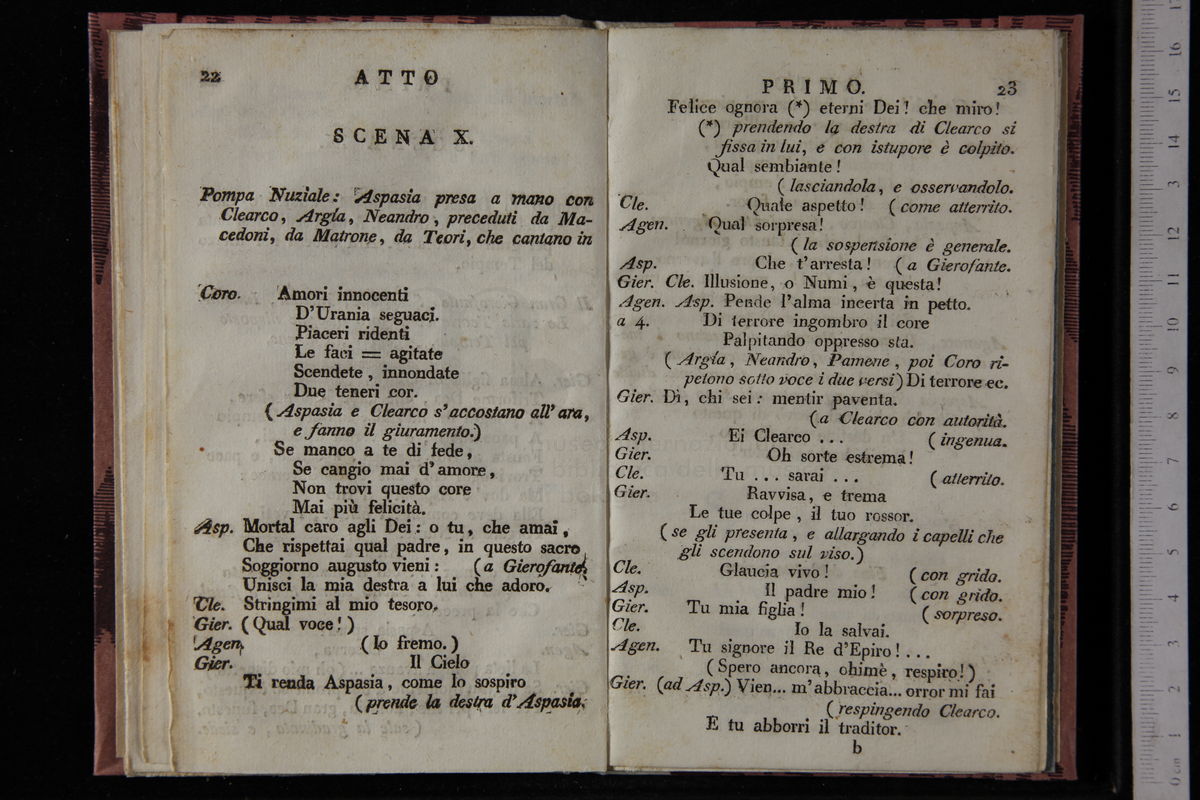 22
ATTO
SCENA X.
Pompa Nuziale: Aspasia presa a mano con
Clearco, Argía, Neandro, preceduti da Ma-
cedoni, da Matrone, da Teori, che cantano in
Coro. Amori innocenti
D'Urania seguaci.
Piaceri ridenti
Le faci = agitate
Scendete, innondate
Due teneri cor.
(Aspasia e Clearco s'accostano all'ara,
e fanno il giuramento.)
Se manco a te di fede,
Se cangio mai d'amore,
Non trovi questo core
Mai più felicità.
Asp. Mortal caro agli Dei: o tu, che amai,
Che rispettai qual padre, in questo sacro
Soggiorno augusto vieni: (a Gierofante,
Unisci la mia destra a lui che adoro.
Cle. Stringimi al mio tesoro.
Gier. (Qual voce!)
Agen. (Io fremo.)
Gier. Il Cielo
Ti renda Aspasia, come lo sospiro
(prende la destra d'Aspasia.
PRIMO.
23
Felice ognora (*) eterni Dei! che miro!
(*) prendendo la destra di Clearco si
fissa in lui, e con istupore è colpito.
Qual sembiante!
(lasciandola, e osservandolo.
Cle. Quale aspetto! (come atterrito.
Agen. Qual sorpresa!
(la sospensione è generale.
Asp. Che t'arresta! (a Gierofante.
Gier. Cle. Illusione, o Numi, è questa!
Agen. Asp. Pende l'alma incerta in petto.
a 4. Di terrore ingombro il core
Palpitando oppresso sta.
(Argía, Neandro, Pamene, poi Coro ri-
petono sotto voce i due versi) Di terrore ec.
Gier. Dì, chi sei: mentir paventa.
(a Clearco con autorità.
Asp. Ei Clearco ... (ingenua.
Gier. Oh sorte estrema!
Cle. Tu ... sarai ... (atterrito.
Gier. Ravvisa, e trema
Le tue colpe, il tuo rossor.
(se gli presenta, e allargando i capelli che
gli scendono sul viso.)
Cle. Glaucia vivo! (con grido.
Asp. Il padre mio! (con grido.
Gier. Tu mia figlia! (sorpreso.
Cle. Io la salvai.
Agen. Tu signore il Re d'Epiro! ...
(Spero ancora, ohimè, respiro!)
Gier. (ad Asp.) Vien... m'abbraccia... orror mi fai
(respingendo Clearco.
E tu abborri il traditor.
b